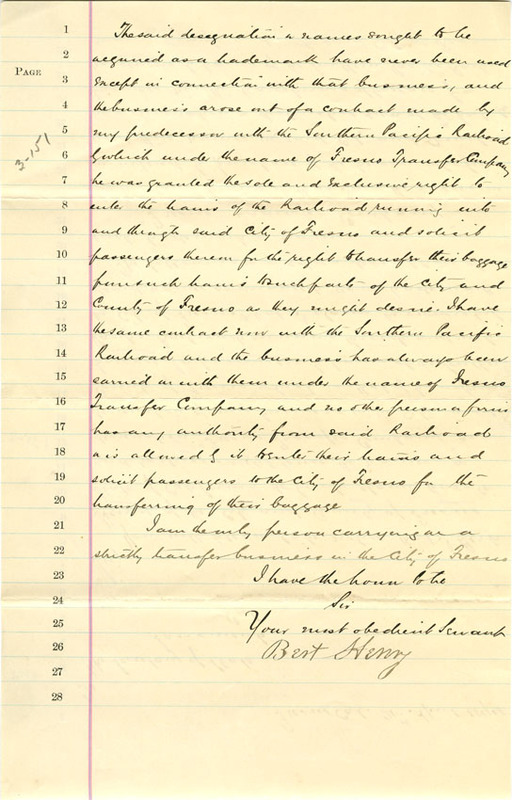 1 The said designation or names sought to be
2 acquired as a trademark have never been used
PAGE
3 except in connection with that business, and
4 the business arose out of a contract made by
5 my predecessor with the Southern Pacific Railroad
3-151
6 by which under the name of Fresno Transfer Company
7 he was granted the sole and exclusive right to
8 enter the trains of the Railroad running into
9 and through said City of Fresno and solicit
10 passengers thereon for the right to transfer their baggage
11 from such trains to such parts of the City and
12 County of Fresno as they might desire. I have
13 the same contract now with the Southern Pacific
14 Railroad and the business has always been
15 carried on with them under the name of Fresno
16 Transfer Company and no other person or firm
17 has any authority from said Railroad
18 or is allowed by it to enter their trains and
19 solicit passengers to the City of Fresno for the
20 transferring of their baggage
21 I am the only person carrying on a
22 strictly transfer business in the City of Fresno
23 I have the honor to be
24 Sir
25 Your most obedient Servant
26 Bert Henry
27
28